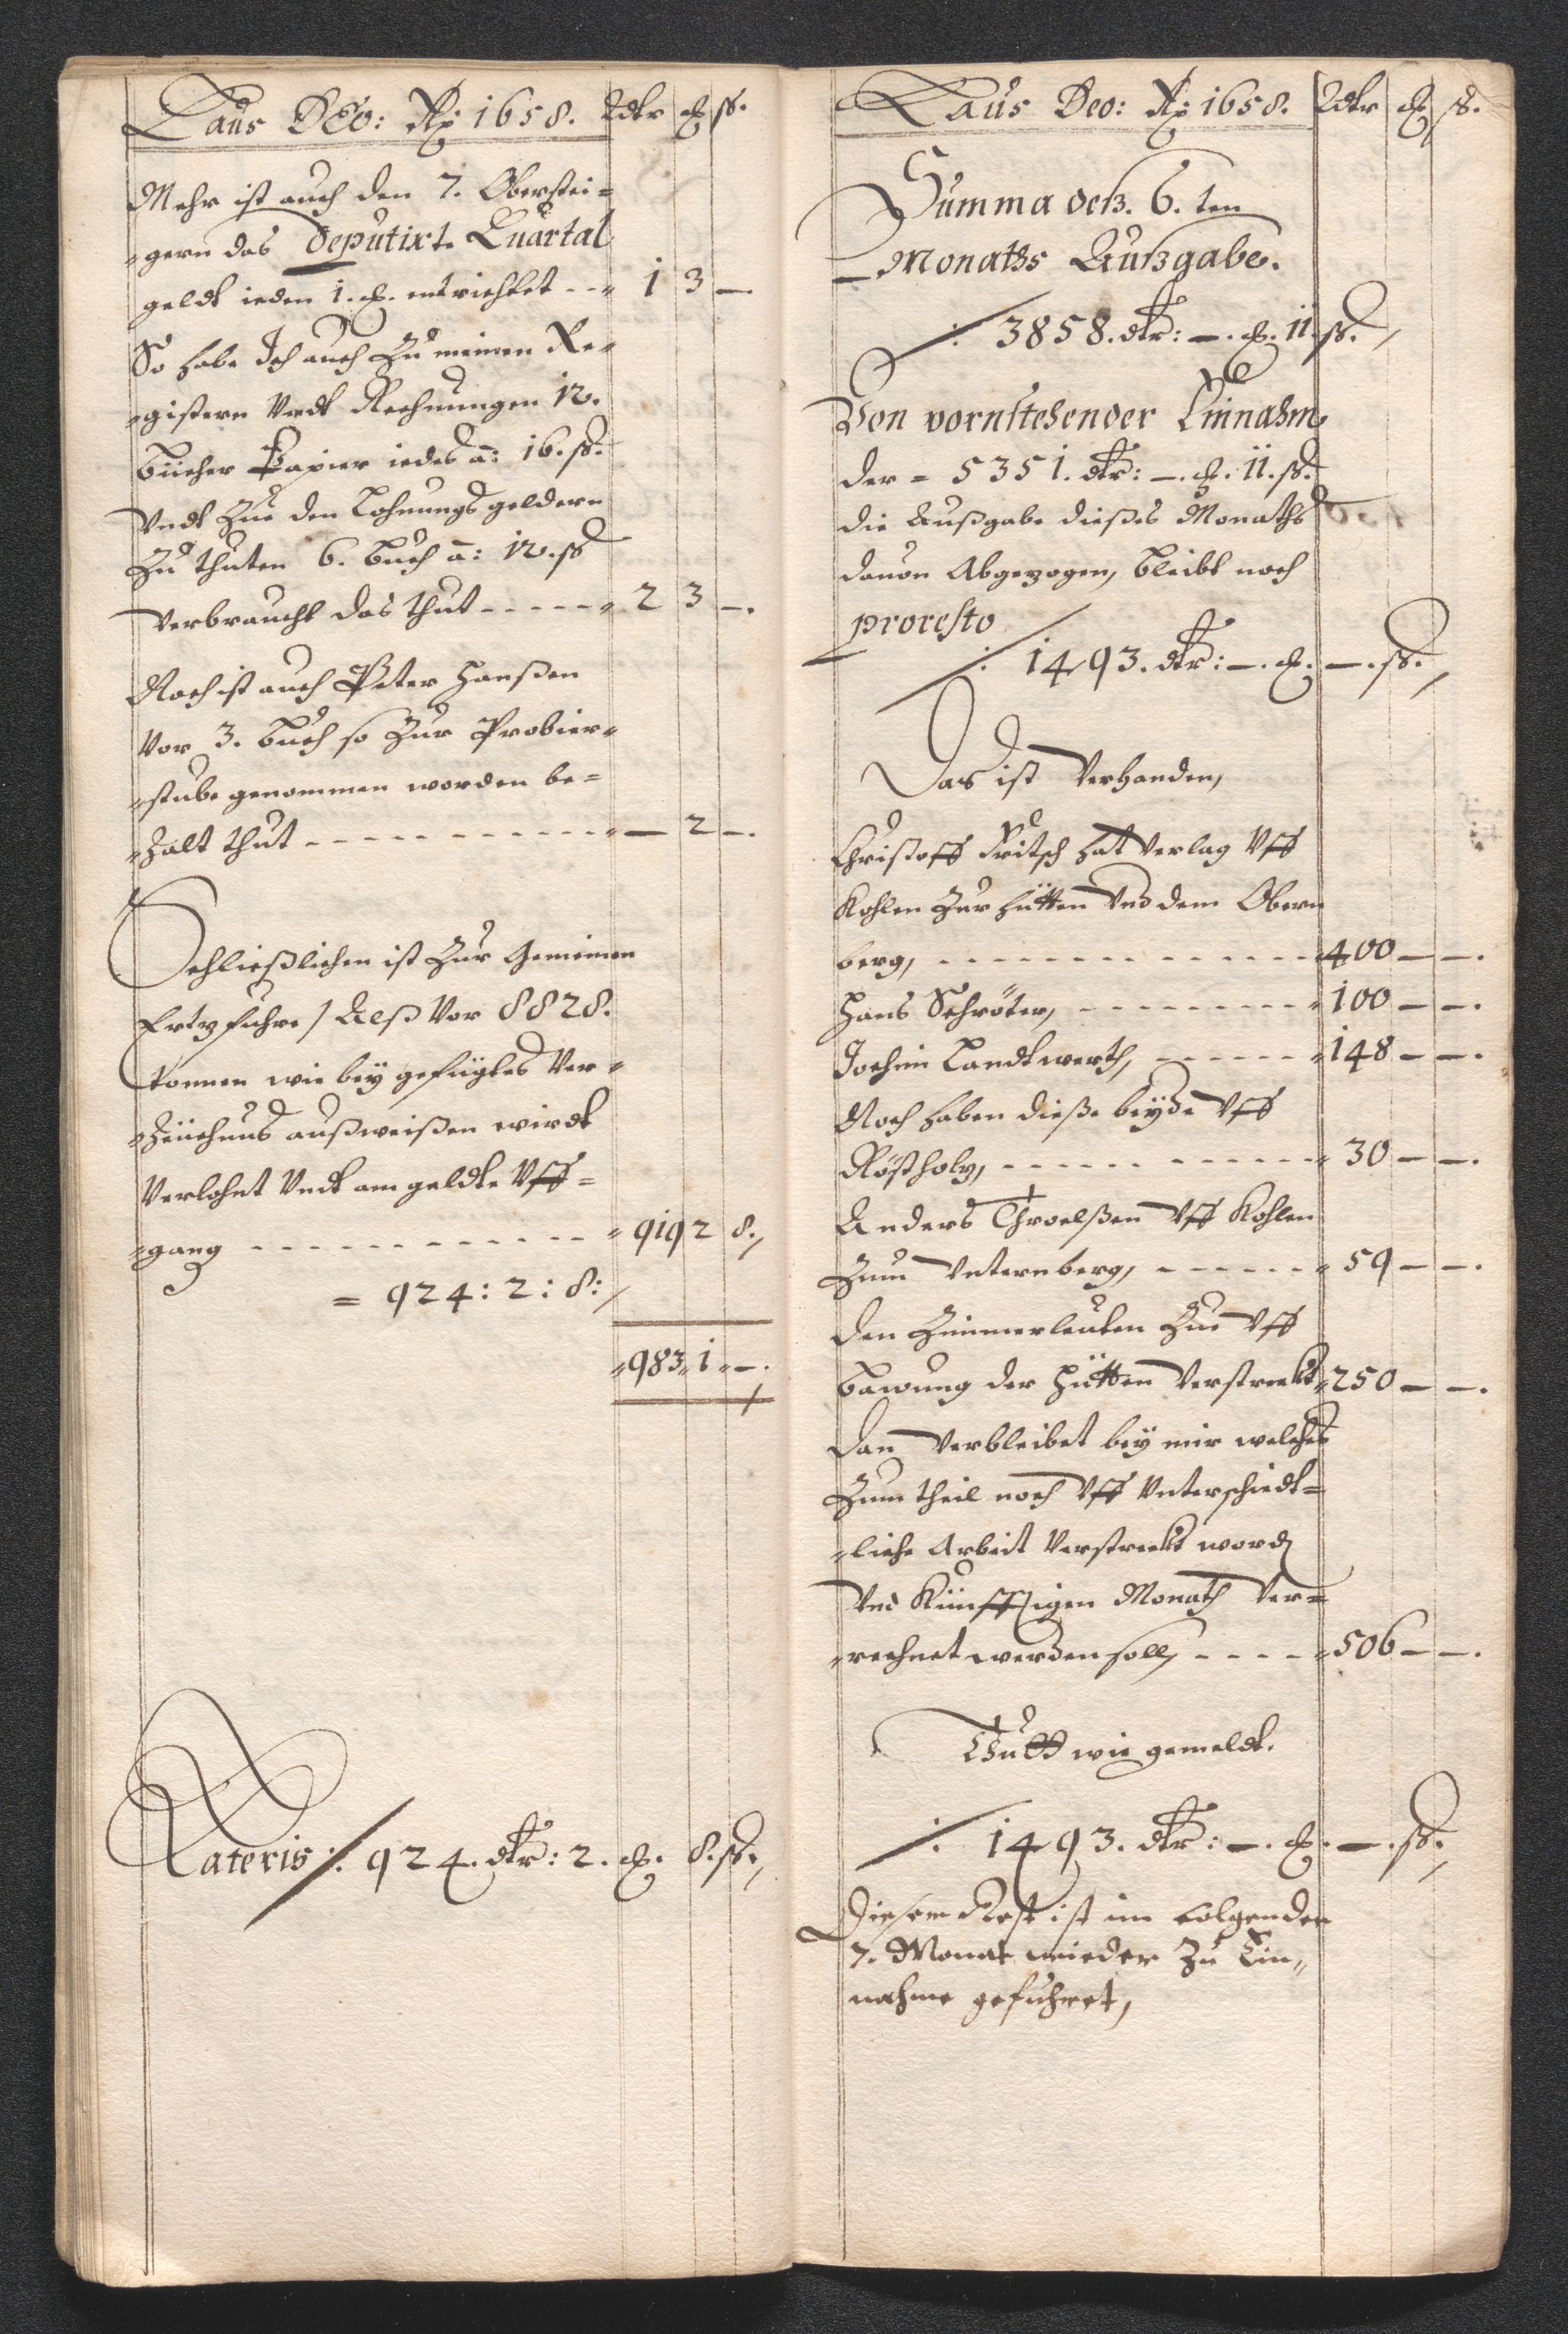 Laus DEo: Xp 1658. Rdtr ℳ ß.
Mehr ist auch den 7. Oberstei=
=gern das Deputirt. Quartal
geldt ieden 1. ℳ. entrichtet - - 1 3 —.
So habe Ich auch Zu meinen Re=
=gistern Vndt Rechnungen 12.
Bücher Papier iedes â: 16. ß.
Vndt Zue den Lohnungs geldern
Zu thuten 6. Buch â: 12. ß
verbraucht das thut - - - - - 2 3 —.
Noch ist auch Peter Hanßen
vor 3. Buch so Zur Probier=
=stube genommen worden be=
=Zalt thut - - - - - - - - - - — 2 —.
Schließlichen ist Zur Gemeinen
Ertzfuhre / Alß vor 8828.
tonnen wie bey gefügtes Ver=
=Zeichnus außweißen wirdt
Verlohnt Vndt am geldte Vff=
=gang - - - - - - - - - - - 919 2 8.
= 924: 2: 8:
983 1 —.
Lateris ⁒ 924. dtr: 2. ℳ. 8. ß.
Laus Deo: Xp 1658. Rdtr ℳ ß.
Summa deß. 6. ten
Monaths Außgabe.
⁒ 3858. dtr: —. ℳ. 11 ß.
Von vornstehender Einnahm
der = 5351. dtr: —. ℳ. 11. ß.
die Außgabe dießes Monaths
dauon Abgezogen, bleibt noch
pro resto
⁒ 1493. dtr: —. ℳ. —. ß.
Das ist Verhanden,
Christoff Fritsch hat Verlag Vff
Kohlen Zur hütten Vnd dem Obern
berg, - - - - - - - - - - - 400 — —.
Hans Schröter, - - - - - - - - 100 — —.
Jochim Landtwerth, - - - - - - 148 — —.
Noch haben dieße beyde Vff
Röstholtz, - - - - - - - - - - 30 — —.
Anders Throelßen Vff Kohlen
Zum Vnternberg, - - - - - - 59 — —.
den Zimmerleuten Zue Vff
bawung der Hütten Verstreckt 250 — —.
dan Verbleibet bey mir welches
Zum theil noch Vff Vnterschiedt=
=liche Arbeit Verstreckt word
Vnd Künfftigen Monath Ver=
=rechnet werden soll, - - - - 506 — —.
Thutt wie gemeldt.
⁒ 1493. dtr: —. ℳ. —. ß.
Dieser Rest ist im folgenden
7. Monat wieder Zu Ein=
nahme geführet,